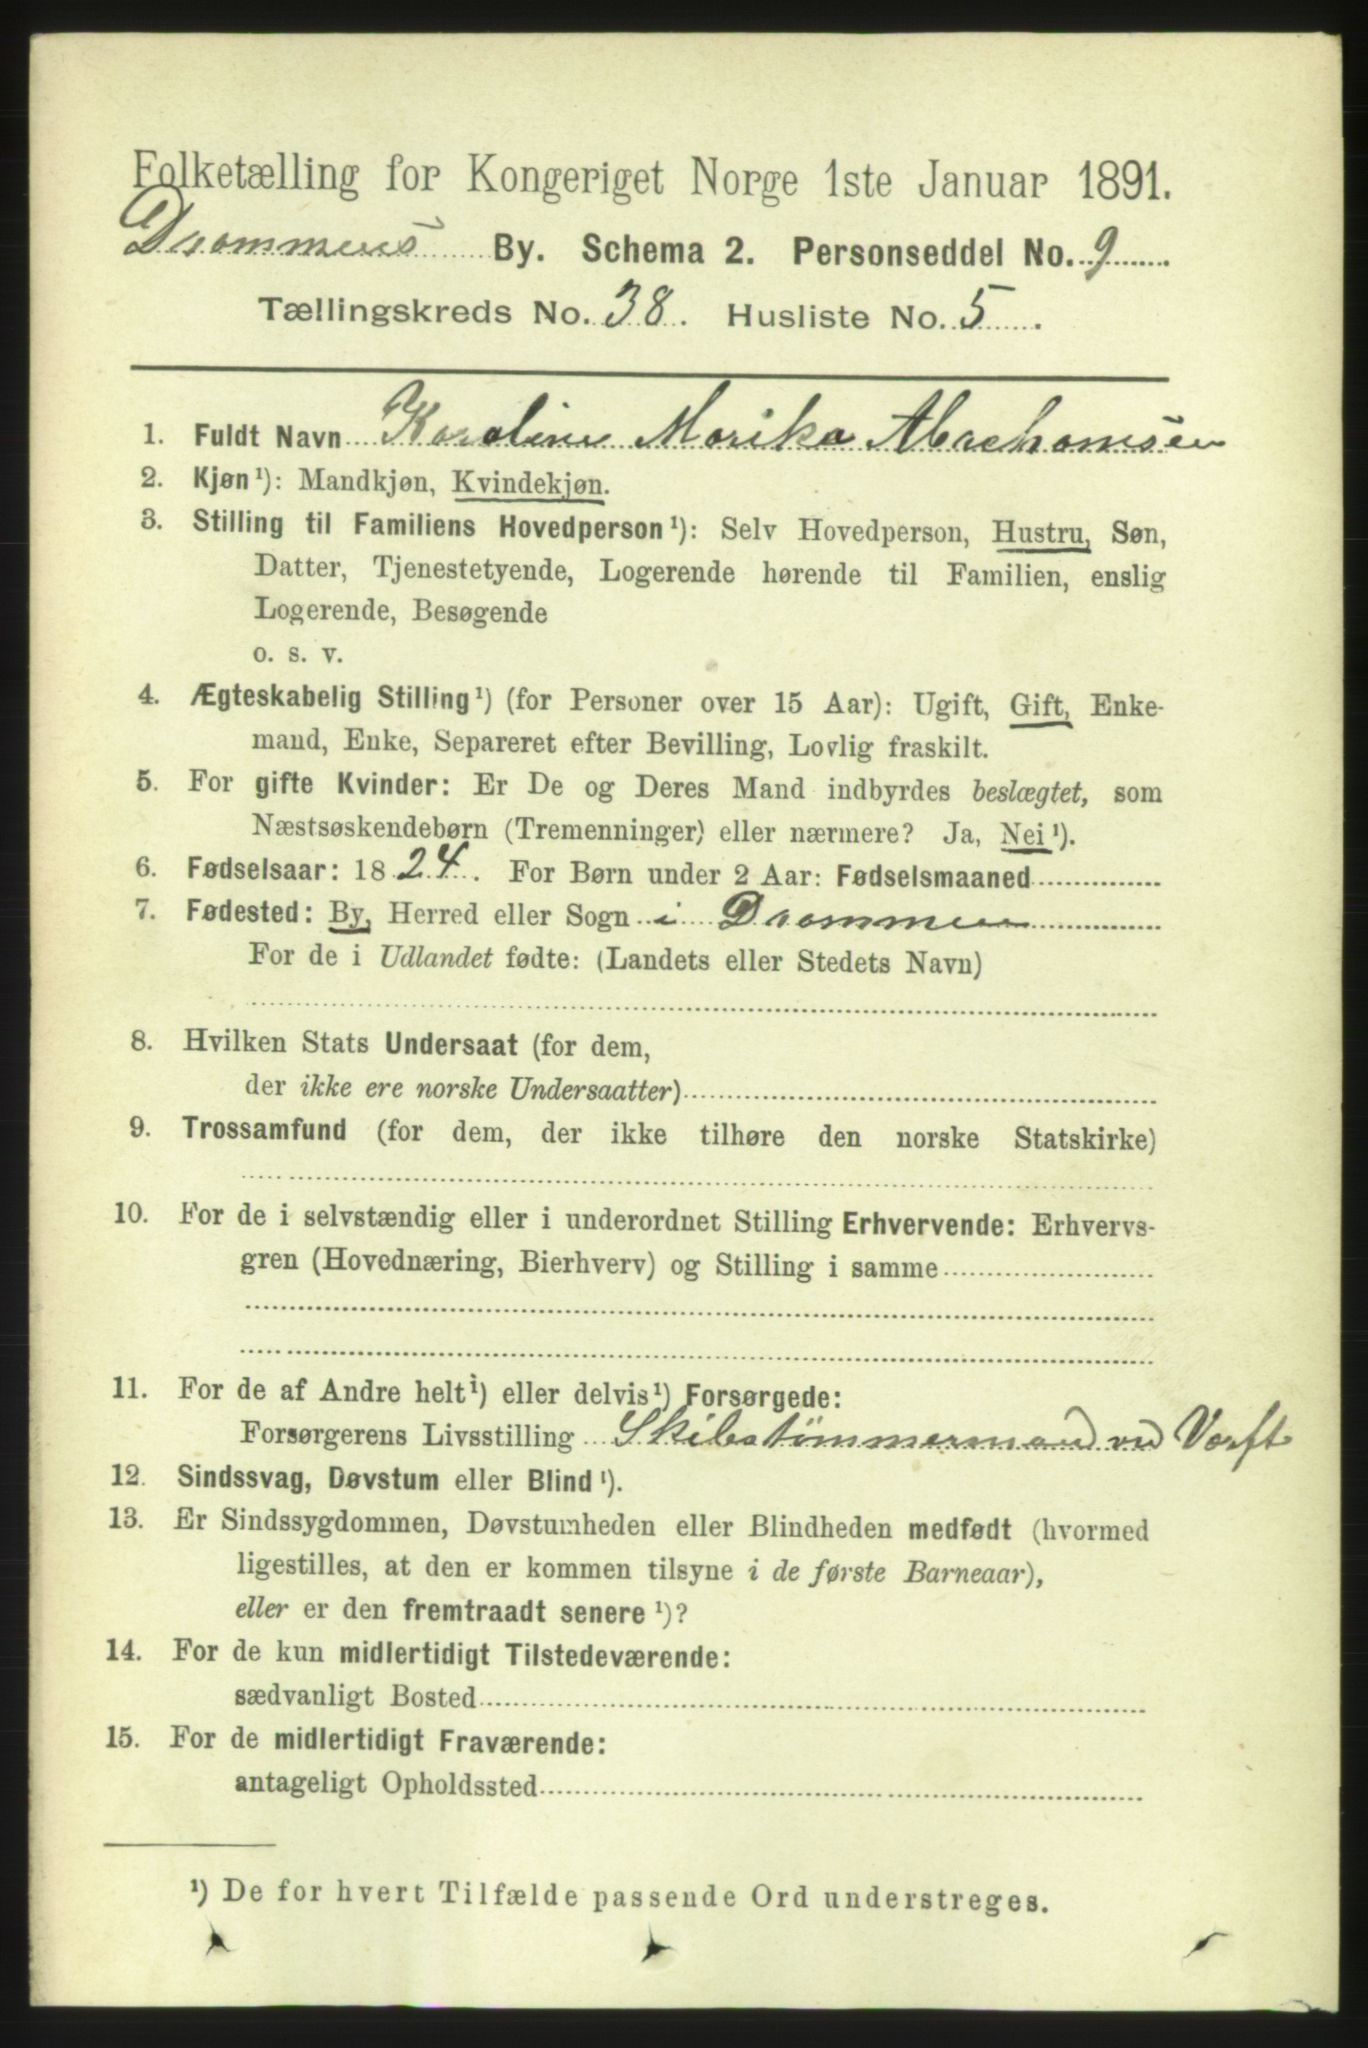 Folketælling for Kongeriget Norge 1ste Januar 1891.
Drammens By. Schema 2. Personseddel No. 9
Tællingskreds No. 38. Husliste No. 5.
1. Fuldt Navn Karoline Marika Abrahamsen
2. Kjøn¹): Mandkjøn, Kvindekjøn.
3. Stilling til Familiens Hovedperson¹): Selv Hovedperson, Hustru, Søn,
Datter, Tjenestetyende, Logerende hørende til Familien, enslig
Logerende, Besøgende
o. s. v.
4. Ægteskabelig Stilling¹) (for Personer over 15 Aar): Ugift, Gift, Enke-
mand, Enke, Separeret efter Bevilling, Lovlig fraskilt.
5. For gifte Kvinder: Er De og Deres Mand indbyrdes beslægtet, som
Næstsøskendebørn (Tremenninger) eller nærmere? Ja, Nei¹).
6. Fødselsaar: 1824. For Børn under 2 Aar: Fødselsmaaned
7. Fødested: By, Herred eller Sogn i Drammen
For de i Udlandet fødte: (Landets eller Stedets Navn)
8. Hvilken Stats Undersaat (for dem,
der ikke ere norske Undersaatter)
9. Trossamfund (for dem, der ikke tilhøre den norske Statskirke)
10. For de i selvstændig eller i underordnet Stilling Erhvervende: Erhvervs-
gren (Hovednæring, Bierhverv) og Stilling i samme
11. For de af Andre helt¹) eller delvis¹) Forsørgede:
Forsørgerens Livsstilling Skibstømmermand ved Værft
12. Sindssvag, Døvstum eller Blind¹).
13. Er Sindssygdommen, Døvstumheden eller Blindheden medfødt (hvormed
ligestilles, at den er kommen tilsyne i de første Barneaar),
eller er den fremtraadt senere¹)?
14. For de kun midlertidigt Tilstedeværende:
sædvanligt Bosted
15. For de midlertidigt Fraværende:
antageligt Opholdssted
¹) De for hvert Tilfælde passende Ord understreges.